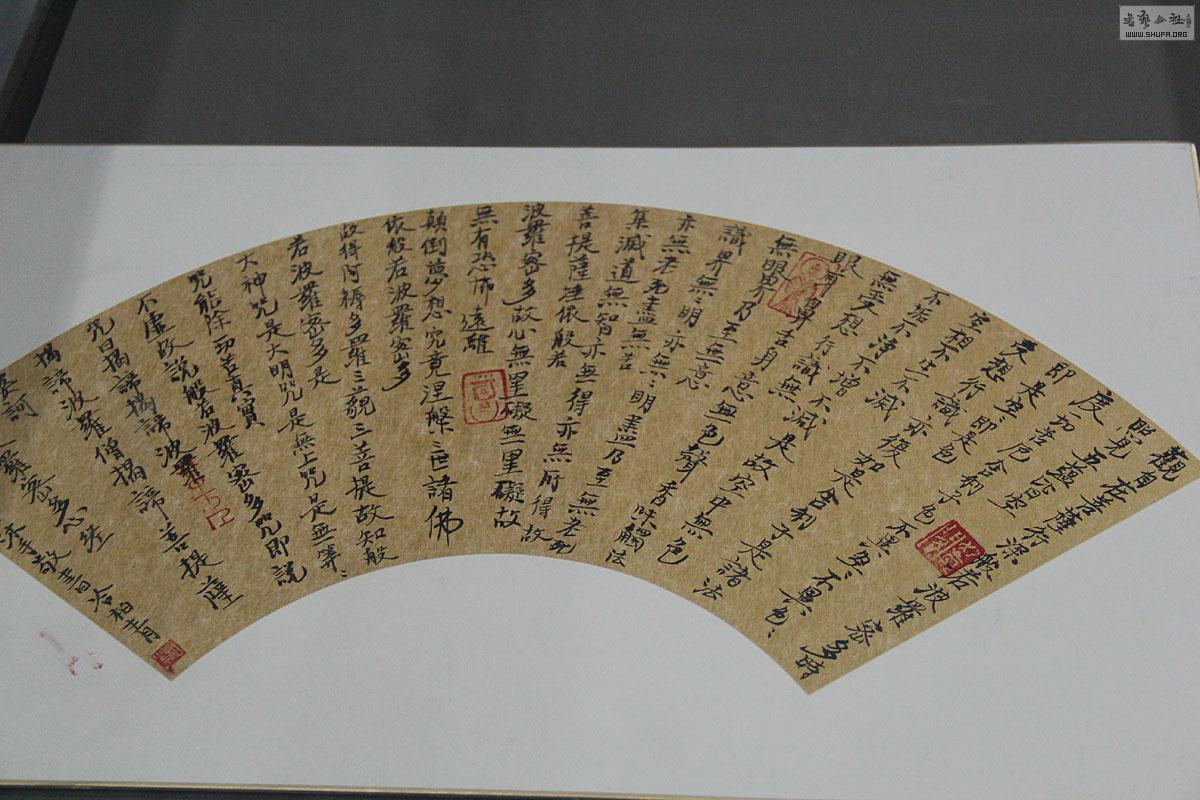 觀自在菩薩行深般若波羅密多時
照見五蘊皆空
度一切苦厄舍利子色不異空、不異、色、
即是空、即是色
受想行識亦復如是舍利子是諸法
空相不生不滅
不垢不淨不增不減是故空中無色
無受想行識無
眼耳鼻舌身意無色聲香味觸法
無眼界乃至無意
識界無、明亦無、明盡乃至無老死
亦無老死盡無苦
集滅道無智亦無得亦無所得故
菩提薩埵依般若
波羅密多故心無罣礙無罣礙故
無有恐怖遠離
顛倒夢想究竟涅槃三世諸佛
依般若波羅密多
故得阿耨多羅三藐三菩提故知般
若波羅密多是
大神咒是大明咒是無上咒是無等、
咒能除一切苦真實
不虛故說般若波羅密多咒即說
咒曰揭諦揭諦波羅
揭諦波羅僧揭諦菩提薩
婆訶
羅密多心經
敬書冷柏青
書藝公社
WWW.SHUFA.ORG